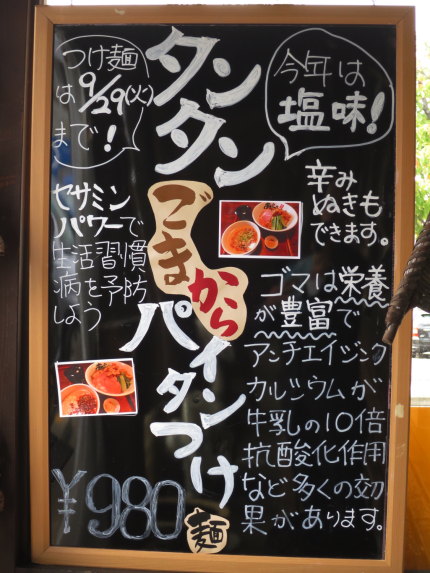 つけ麺
は9/29(火)
まで!
タンタン
今年は
塩味!
ごまから
パイタンつけ
麺
辛み
ぬきも
できます。
セサミン
パワーで
生活習慣
病を予防
しよう
ゴマは栄養
が豊富で
アンチエイジング
カルシウムが
牛乳の10倍
抗酸化作用
など多くの効
果があります。
¥980